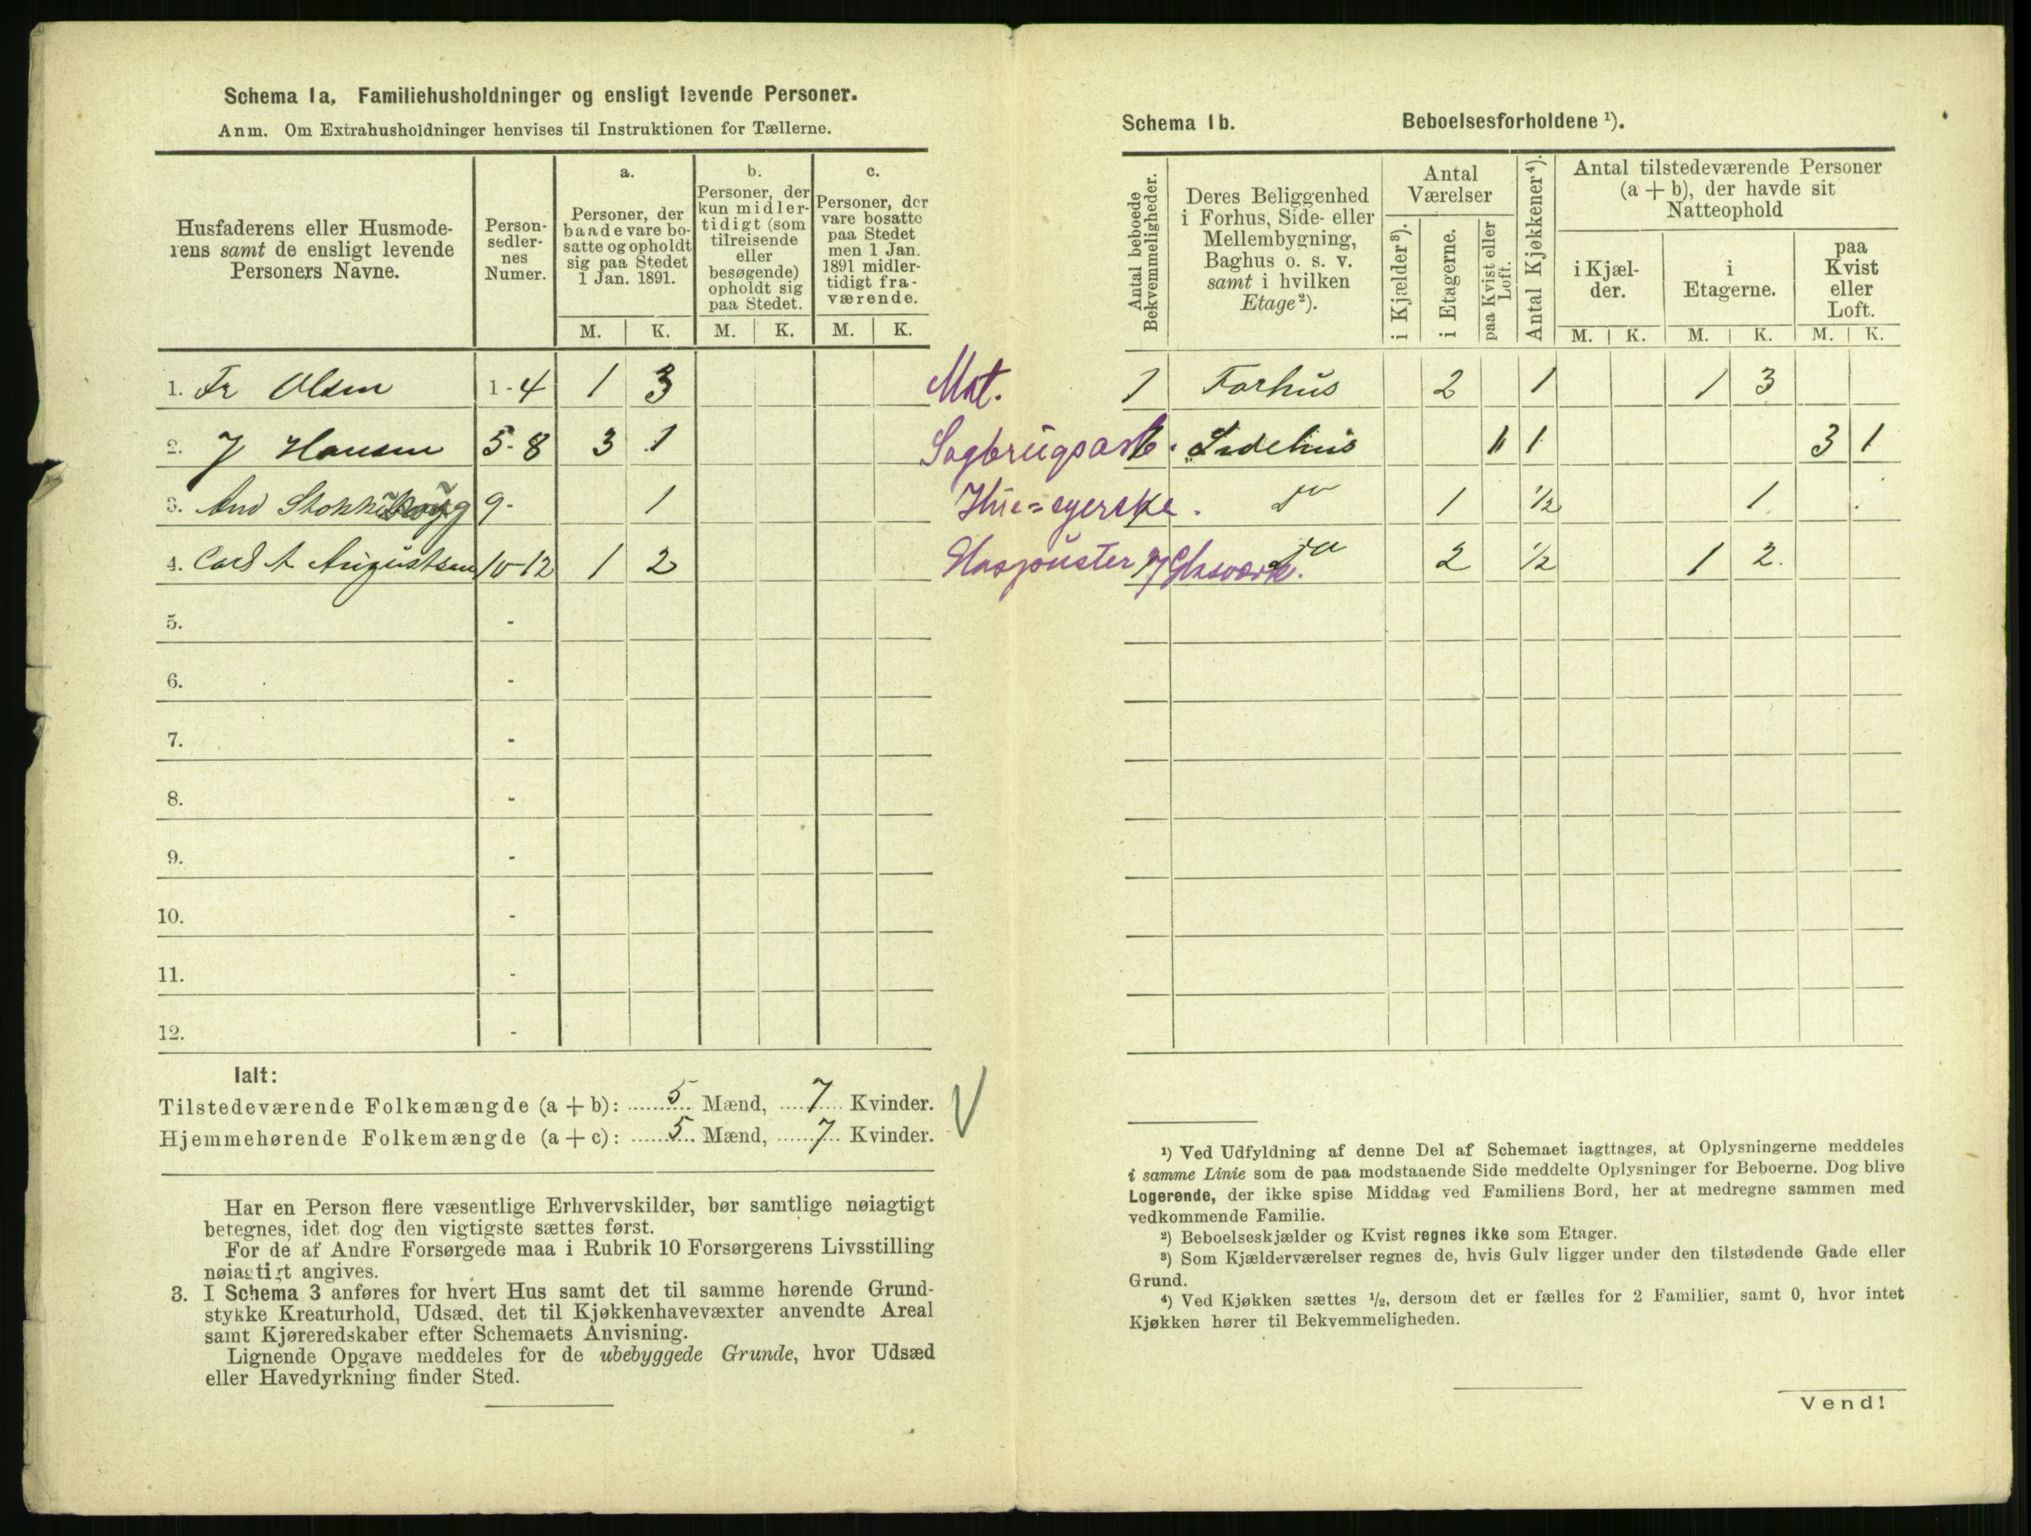 Schema 1a. Familiehusholdninger og ensligt levende Personer.
Anm. Om Extrahusholdninger henvises til Instruktionen for Tællerne.
Husfaderens eller Husmode-
rens samt de ensligt levende
Personers Navne.
Person-
sedler-
nes
Numer.
a.
Personer, der
baade vare bo-
satte og opholdt
sig paa Stedet
1 Jan. 1891.
b.
Personer, der
kun midler-
tidigt (som
tilreisende
eller
besøgende)
opholdt sig
paa Stedet.
c.
Personer, der
vare bosatte
paa Stedet
men 1 Jan.
1891 midler-
tidigt fra-
værende.
M. K. M. K. M. K.
1. Fr Olsen 1-4 1 3
2. J Hansen 5-8 3 1
3. And 9- 1
4. Carl A Augustsen 10-12 1 2
5. -
6. -
7. -
8. -
9. -
10. -
11. -
12. -
Ialt:
Tilstedeværende Folkemængde (a + b): 5 Mænd, 7 Kvinder.
Hjemmehørende Folkemængde (a + c): 5 Mænd, 7 Kvinder.
Har en Person flere væsentlige Erhvervskilder, bør samtlige nøiagtigt
betegnes, idet dog den vigtigste sættes først.
For de af Andre Forsørgede maa i Rubrik 10 Forsørgerens Livsstilling
nøiagtigt angives.
3. I Schema 3 anføres for hvert Hus samt det til samme hørende Grund-
stykke Kreaturhold, Udsæd, det til Kjøkkenhavevæxter anvendte Areal
samt Kjøreredskaber efter Schemaets Anvisning.
Lignende Opgave meddeles for de ubebyggede Grunde, hvor Udsæd
eller Havedyrkning finder Sted.
Schema 1b. Beboelsesforholdene ¹).
Antal beboede
Bekvemmeligheder.
Deres Beliggenhed
i Forhus, Side- eller
Mellembygning,
Baghus o. s. v.
samt i hvilken
Etage ²).
Antal
Værelser
i Kjælder ³).
i Etagerne.
paa Kvist eller
Loft.
Antal Kjøkkener ⁴).
Antal tilstedeværende Personer
(a + b), der havde sit
Natteophold
i Kjæl-
der.
i
Etagerne.
paa
Kvist
eller
Loft.
M. K. M. K. M. K.
Mat. 1 Forhus 2 1 1 3
Sagbrugsarb. 1 Sidehus 1 1 3 1
1 do 1 ½ 1
Glasværk. do 2 ½ 1 2.
¹) Ved Udfyldning af denne Del af Schemaet iagttages, at Oplysningerne meddeles
i samme Linie som de paa modstaaende Side meddelte Oplysninger for Beboerne. Dog blive
Logerende, der ikke spise Middag ved Familiens Bord, her at medregne sammen med
vedkommende Familie.
²) Beboelseskjælder og Kvist regnes ikke som Etager.
³) Som Kjælderværelser regnes de, hvis Gulv ligger under den tilstødende Gade eller
Grund.
⁴) Ved Kjøkken sættes ½, dersom det er fælles for 2 Familier, samt 0, hvor intet
Kjøkken hører til Bekvemmeligheden.
Vend!